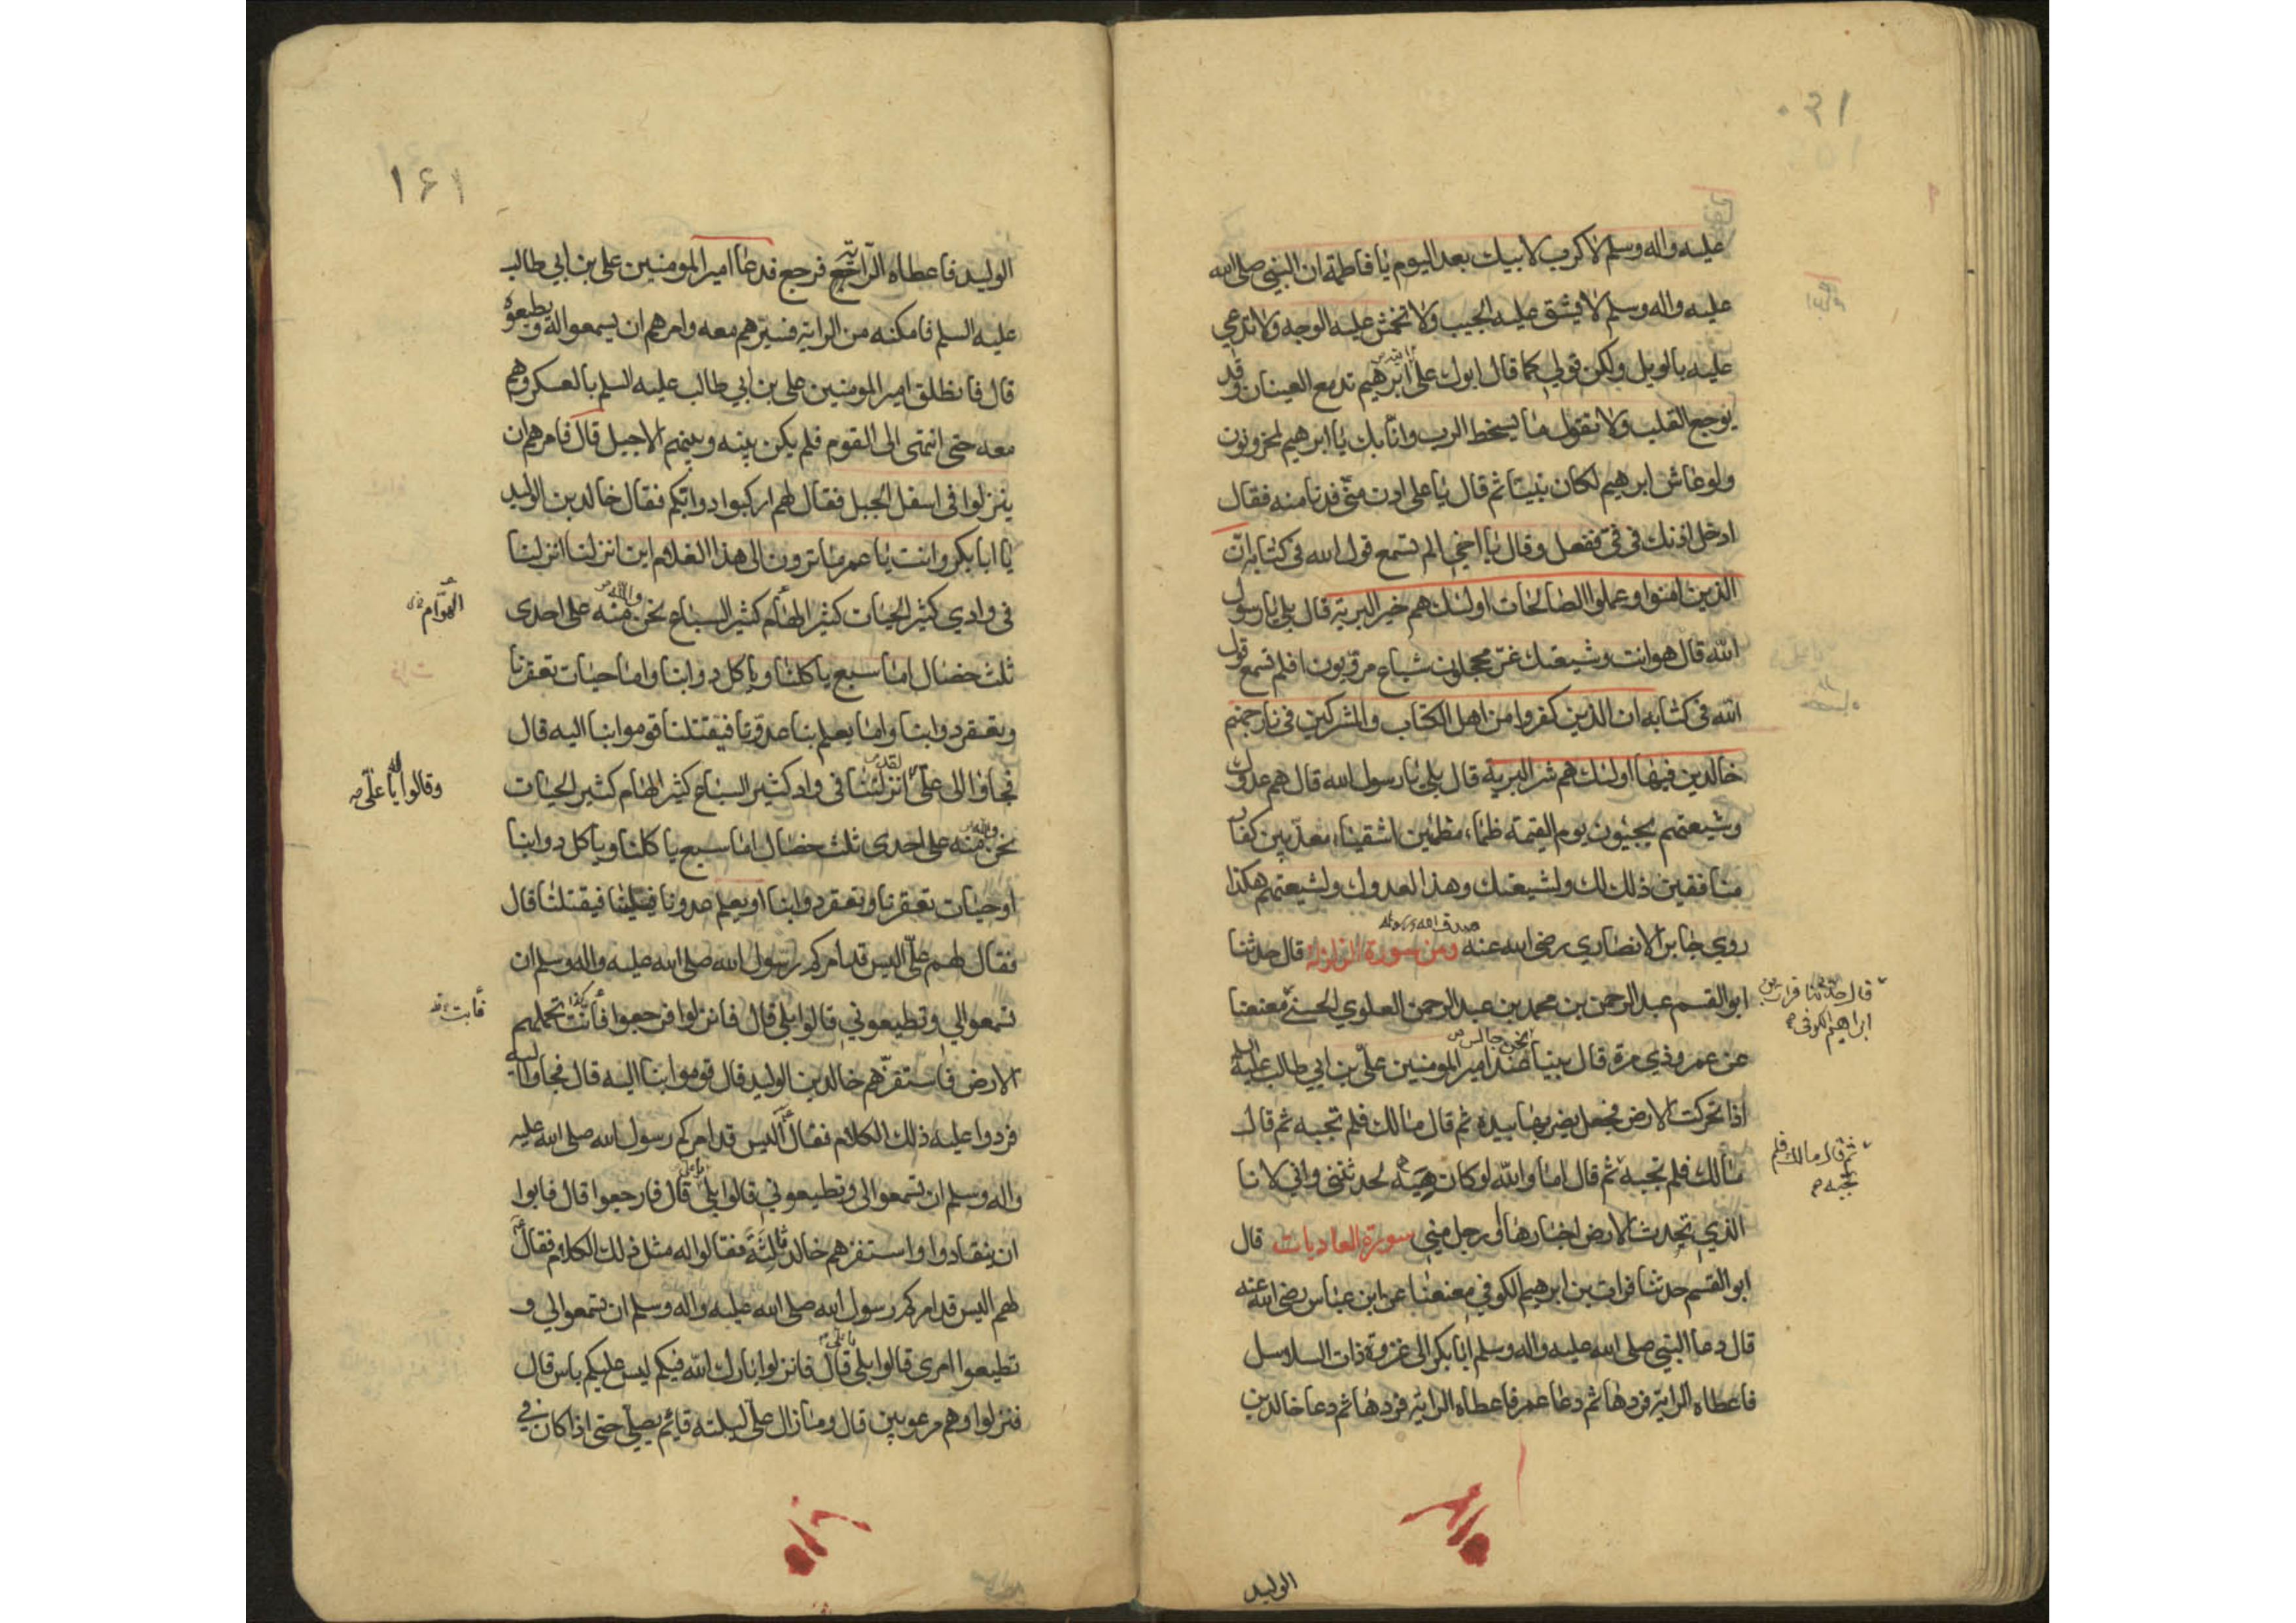 عليه واله وسلم لا كرب لابيك بعد اليوم يا فاطمة ان النبي صلى الله
عليه واله وسلم لا يشق عليه الجيب ولا تخمش عليه الوجه ولا تدعي
عليه بالويل ولكن قولي كما قال ابوك على ابرهيم تدمع العينان وقد
يوجع القلب ولا نقول ما يسخط الرب وانا بك يا ابرهيم لمحزونون
ولو عاش ابرهيم لكان نبيتا ثم قال يا علي ادن مني فدنا منه فقال
ادخل اذنك في في ففعل وقال يا اخي الم تسمع قول الله في كتابه ان
الذين امنوا وعملوا الصالحات اولئك هم خير البرية قال بلى يا رسول
الله قال هو انت وشيعتك غر محجلون شباع مرويون افلم تسمع قول
الله في كتابه ان الذين كفروا من اهل الكتاب والمشركين في نار جهنم
خالدين فيها اولئك هم شر البرية قال بلى يا رسول الله قال هم عدوك
وشيعتهم يجيئون يوم القيمة ظماء مظمئين اشقياء معذبين كفار
منافقين ذلك لك ولشيعتك وهذا لعدوك ولشيعتهم هكذا
روي جابر الانصاري رضي الله عنه صدق الله ورسوله ومن سورة الزلزلة قال حدثنا
ابو القسم عبد الرحمن بن محمد بن عبد الرحمن العلوي الحسني معنعنا
قال حدثنا فرات بن
ابراهيم الكوفي
عن عمرو ذي مرة قال بينا نحن جالس عند امير المؤمنين علي بن ابي طالب عليه السلم
اذا تحركت الارض فجعل يضربها بيده ثم قال مالك فلم تجبه ثم قال
مالك فلم تجبه ثم قال اما والله لو كان هيه لحدثتني واني لانا
ثم قال مالك فلم
تجبه
الذي تحدث الارض اخبارها او رجل مني سورة العاديات قال
ابو القسم حدثنا فرات بن ابرهيم الكوفي معنعنا عن ابن عباس رضي الله عنه
قال دعا النبي صلى الله عليه واله وسلم ابا بكر الى غزوة ذات السلاسل
فاعطاه الراية فردها ثم دعا عمر فاعطاه الراية فردها ثم دعا خالد بن
الوليد
١۶١
الوليد فاعطاه الراية فرجع فدعا امير المومنين علي بن ابي طالب
عليه السلم فامكنه من الراية فسيرهم معه وامرهم ان يسمعوا له ويطيعوه
قال فانطلق امير المومنين علي بن ابي طالب عليه السلم بالعسكر وهم
معه حتى انتهى الى القوم فلم يكن بينه وبينهم الا جبل قال فامرهم ان
ينزلوا في اسفل الجبل فقال لهم اركبوا دوابكم فقال خالد بن الوليد
يا ابا بكر وانت يا عمر ما ترون الى هذا الغلام اين انزلنا انزلنا
في وادي كثير الحيات كثير الهام كثير السباع نحن والله منه على احدى
الهوام
ثلث خصال اما سبع ياكلنا وياكل دوابنا واما حيات تعقرنا
وتعقر دوابنا واما يعلم بنا عدونا فيقتلنا قوموا بنا اليه قال
فجاؤا الى علي لقد انزلتنا في واد كثير السباع كثير الهام كثير الحيات
وقالوا له يا علي
نحن والله منه على احدى ثلث خصال اما سبع ياكلنا وياكل دوابنا
او حيات تعقرنا وتعقر دوابنا او يعلم عدونا فيقتلنا قال
فقال لهم علي اليس قد امركم رسول الله صلى الله عليه واله وسلم ان
تسمعوا لي وتطيعوني قالوا بلى قال فانزلوا فرجعوا فأنت تحملهم
فأبت
الارض فاستفزهم خالد بن الوليد قال قوموا بنا اليه قال فجاؤا اليه
فردوا عليه ذلك الكلام فقال اليس قد امركم رسول الله صلى الله عليه
واله وسلم ان تسمعوا لي وتطيعوني قالوا بلى يا علي قال فارجعوا قال فابوا
ان ينقادوا واستفزهم خالد ثالثة فقالوا له مثل ذلك الكلام فقال
لهم اليس قد امركم رسول الله صلى الله عليه واله وسلم ان تسمعوا لي و
تطيعوا امري قالوا بلى يا علي قال فانزلوا بارك الله فيكم ليس عليكم باس قال
فنزلوا وهم مرعوبين قال وما زال علي ليلته قايم يصلي حتى اذا كان في